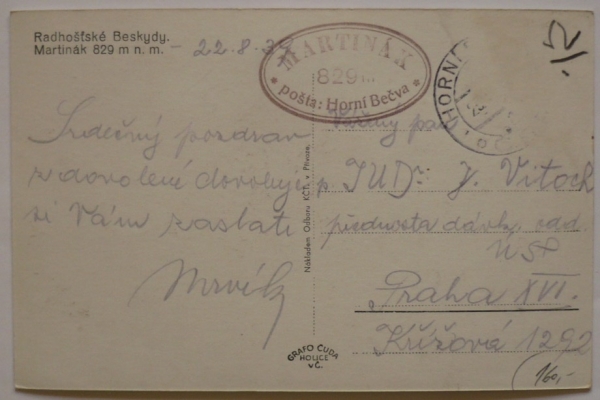 Radhošťské Beskydy.
Martinák 829 m n. m. – 22.8.37
MARTINÁK
829 m.
* pošta: Horní Bečva *
HORNÍ
Srdečný pozdrav
z dovolené dovoluji
si Vám zaslati
Nákladem Odboru KČT. v Přerově.
Vážený pan
p. JUDr. J. Vitoch
přednosta dávk. odd.
Praha XVI.
Křížová 1292
GRAFO ČUDA
HOLICE
v Č.
160,-